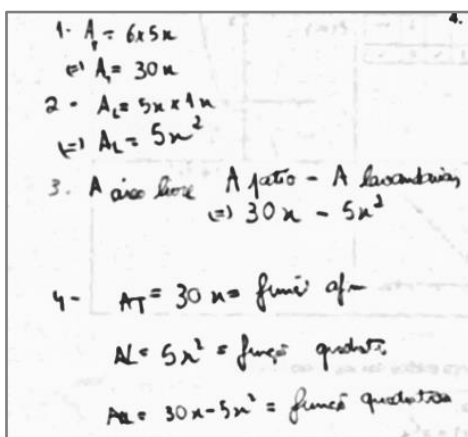 4.
1- A₁ = 6x5x
(=) A₁ = 30x
2- AL = 5x x 1x
(=) AL = 5x²
3. A área livre A pátio - A lavandaria
(=) 30x - 5x²
4- AT = 30x = funçã afim
AL = 5x² = função quadrati
AAL = 30x - 5x² = função quadrática